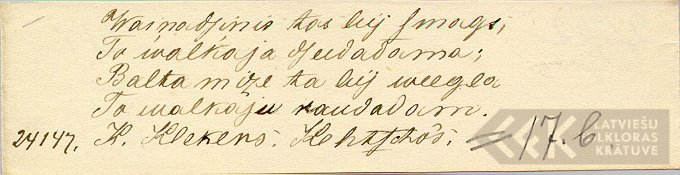 Wainadſinis tas bij ſmags,
To walkaja dſeedadama;
Balta mize ta bij weegla
To walkaju raudadam.
24147. K. Klekers. Kehtſchôs. = 17.6
LATVIEŠU
FOLKLORAS
KRĀTUVE